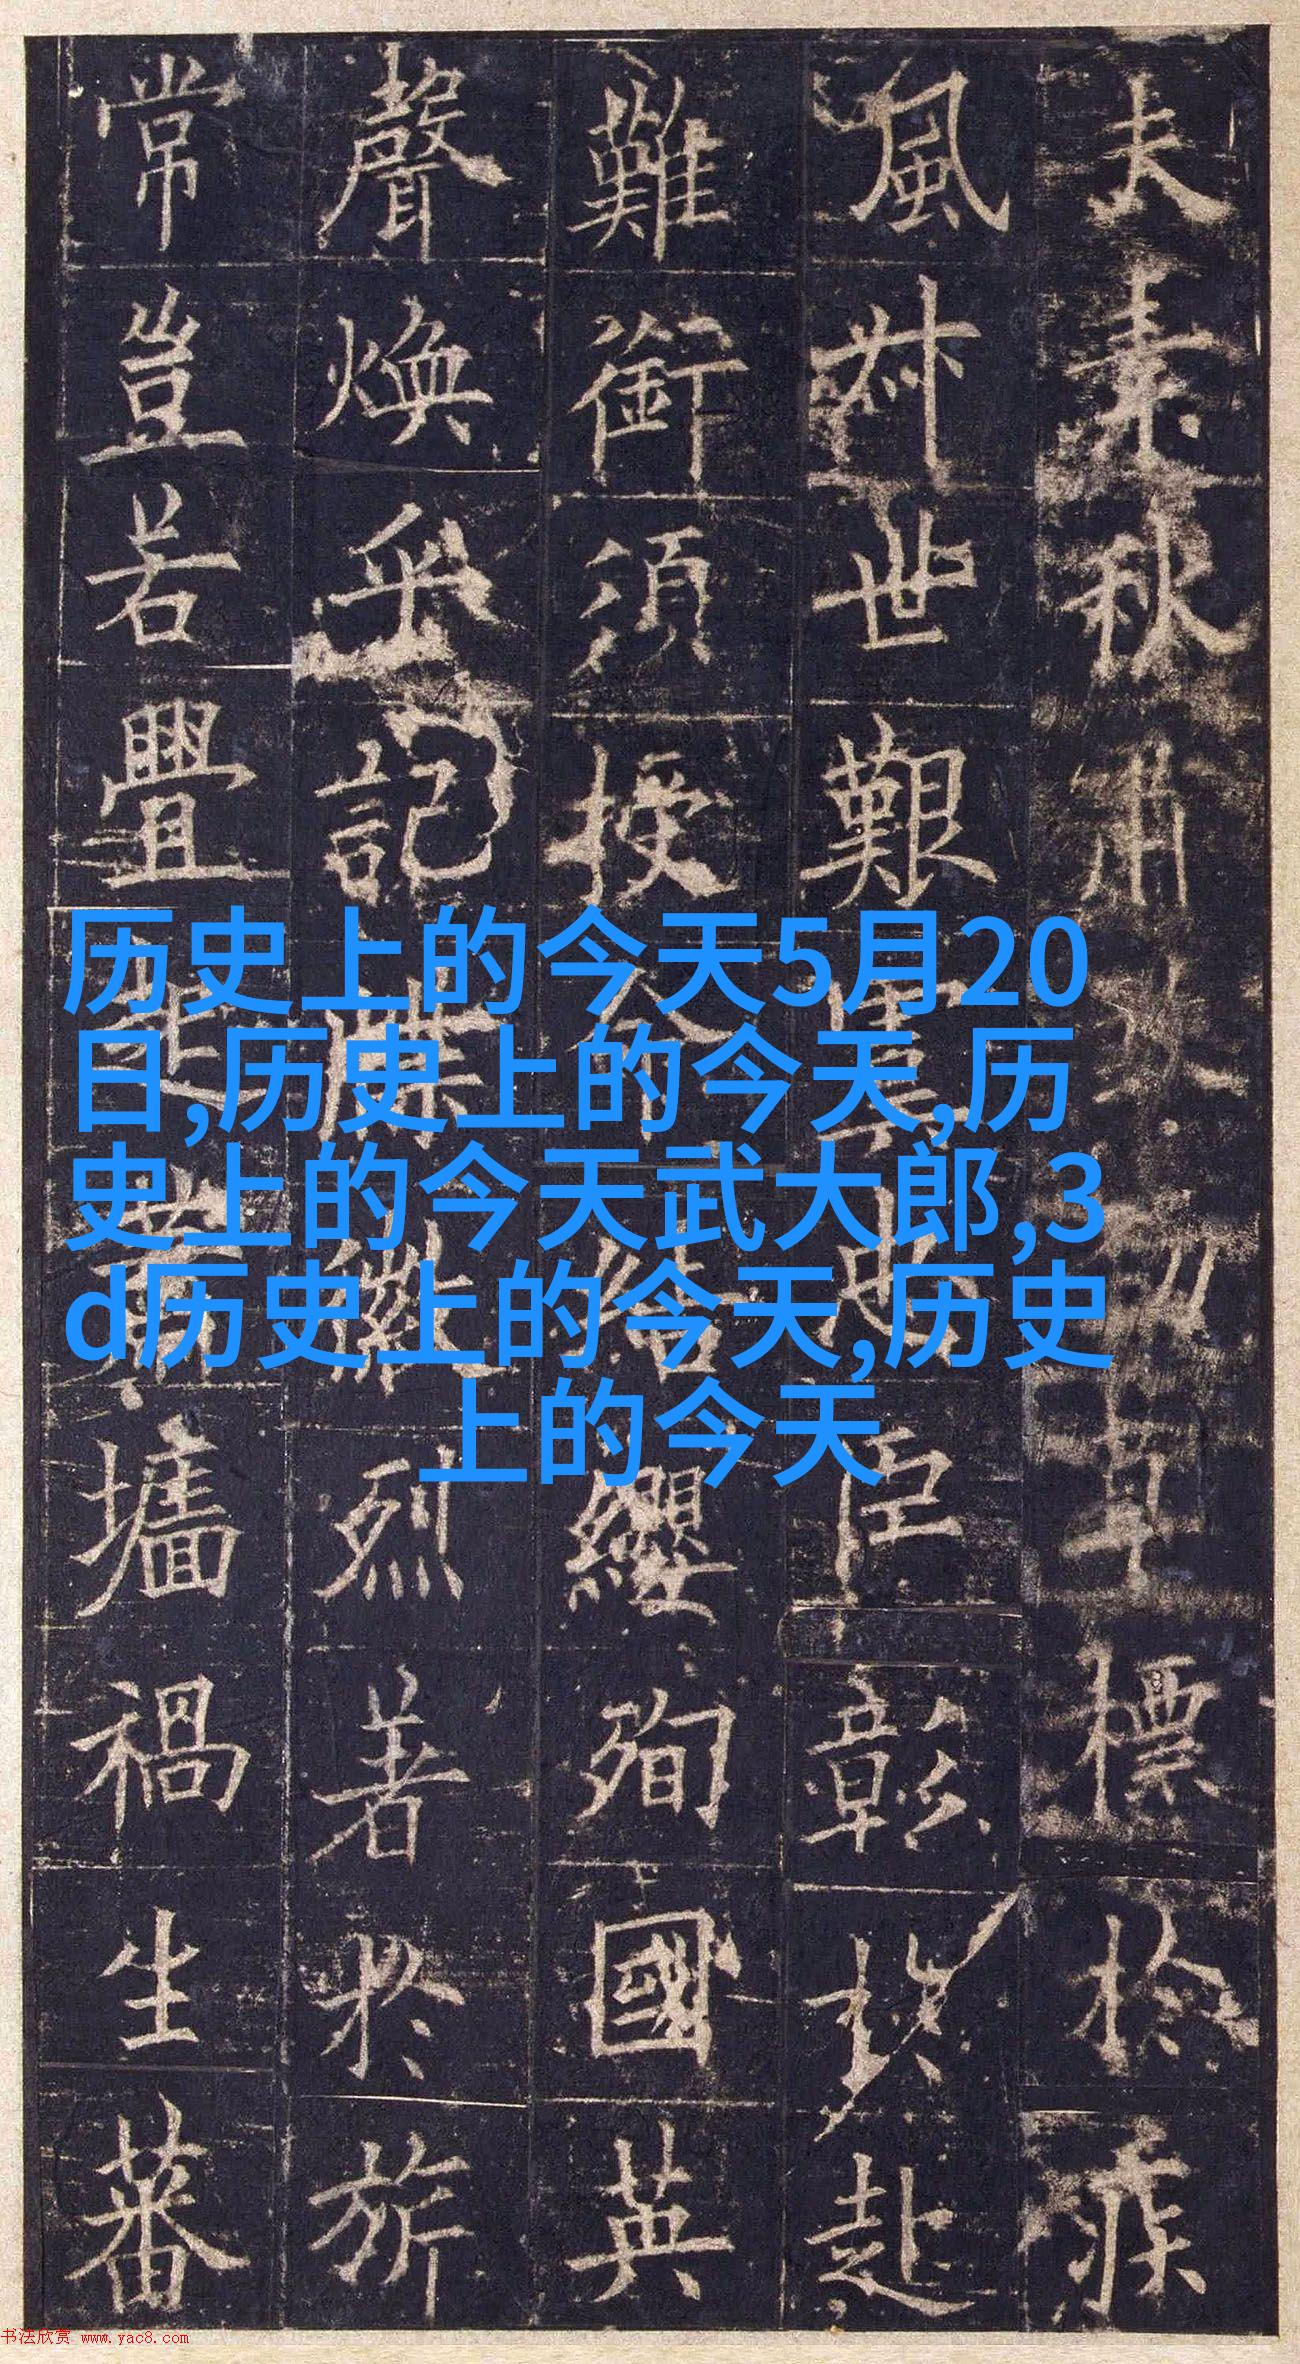 夫素秋肅煞勁草標於疾
風叔世艱虞忠臣彰於赴
難銜須授命結纓殉國英
聲煥乎記牒徽烈著於旂
常豈若亹起蕭墻禍生蕃
历史上的今天5月20
日,历史上的今天,历
史上的今天武大郎,3
d历史上的今天,历史
上的今天
书法欣赏 www.yac8.com